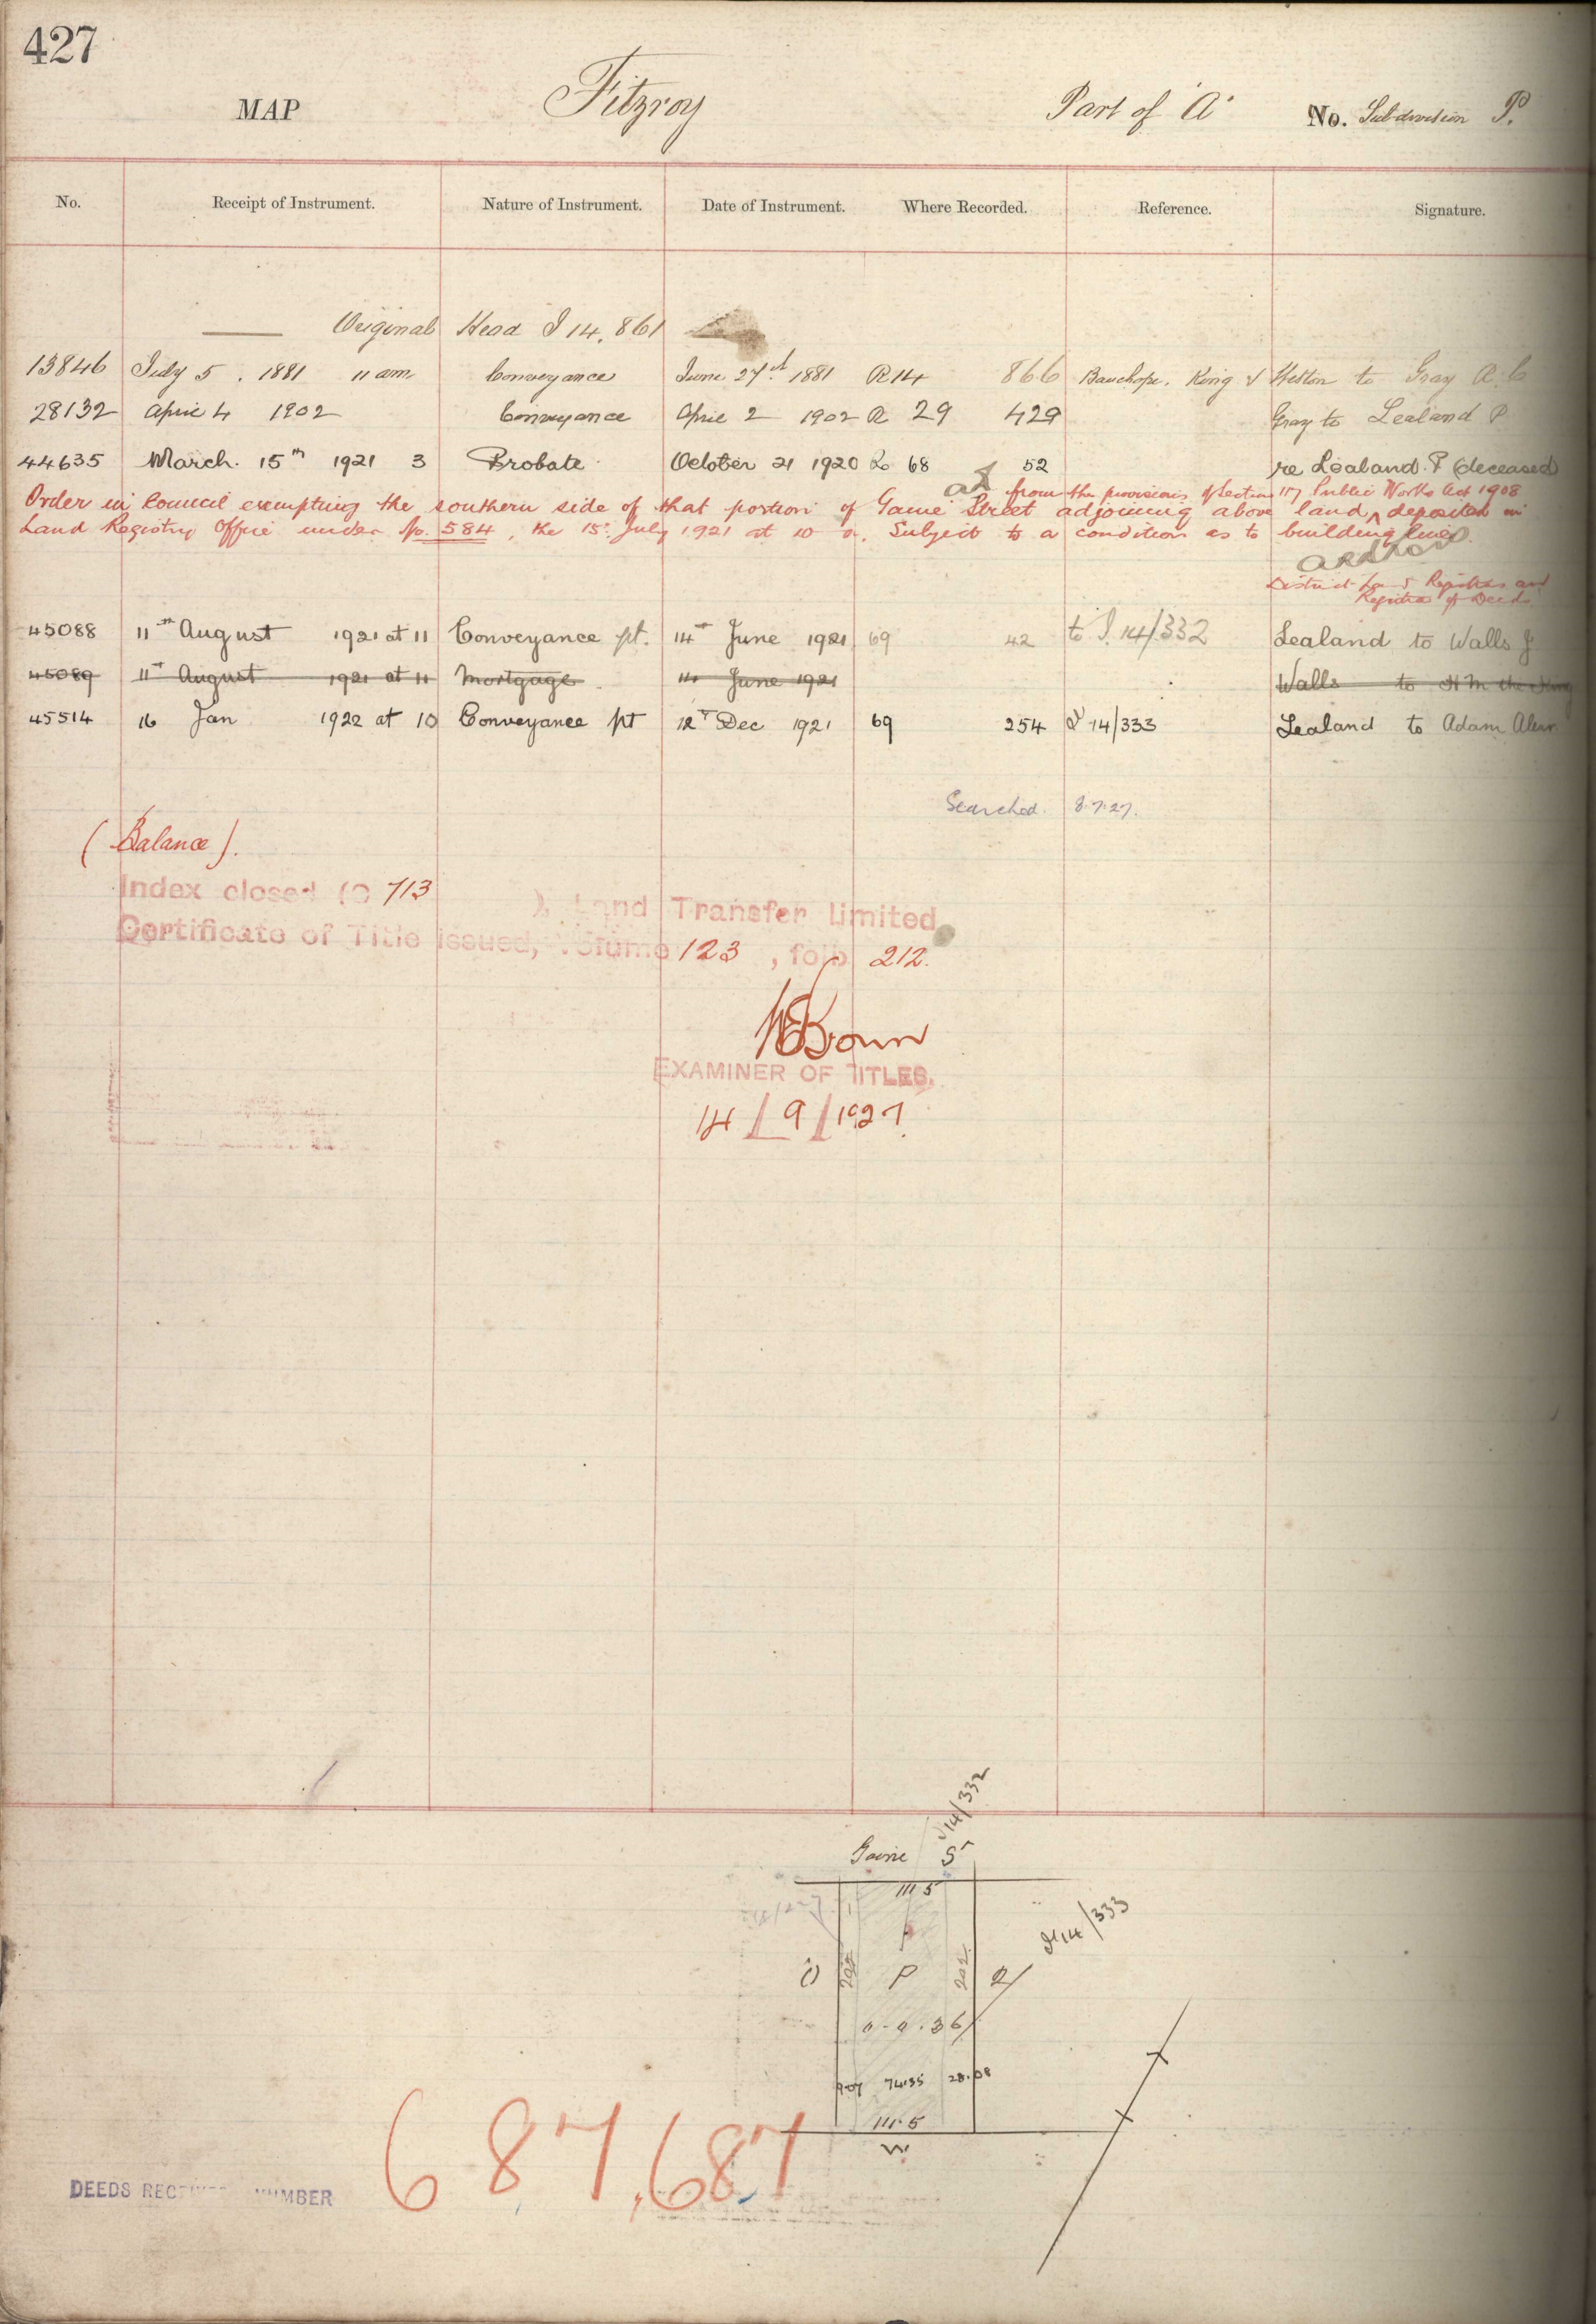 427
MAP Fitzroy Part of 'A' No. Subdivision P.
No. Receipt of Instrument. Nature of Instrument. Date of Instrument. Where Recorded. Reference. Signature.
Original Head I 14, 861
13846 July 5. 1881 11 am Conveyance June 27th 1881 R 14 866 Bauchope, King & Weston to Gray A. C
28132 April 4 1902 Conveyance April 2 1902 R 29 429 Gray to Lealand P
44635 March. 15th 1921 3 Probate October 21 1920 68 52 re Lealand. P (deceased)
from the provisions of Section 117 Public Works Act 1908
Order in Council exempting the southern side of that portion of Gaine Street adjoining above land, deposited in
Land Registry Office under No. 584, the 15th July 1921 at 10 a. Subject to a condition as to building line.
District Land Registrar and
Registrar of Deeds
45088 11th August 1921 at 11 Conveyance pt. 14th June 1921 69 42 to I. 14/332 Lealand to Walls J
45089 11th August 1921 at 11 Mortgage 14 June 1921 Walls to H M the King
45514 16 Jan 1922 at 10 Conveyance pt 12th Dec 1921 69 254 I 14/333 Lealand to Adam Alexr
Searched. 8.7.27.
(Balance).
Index closed (C 713 ), Land Transfer limited
Certificate of Title issued, Volume 123, folio 212.
Brown
EXAMINER OF TITLES.
14/9/1927.
I 14/332
Gaine St
111.5
I 14/333
O 202 P 202 Q
0.0.36
9.07 74.35 28.08
111.5
W
687,687
DEEDS RECEIVING NUMBER